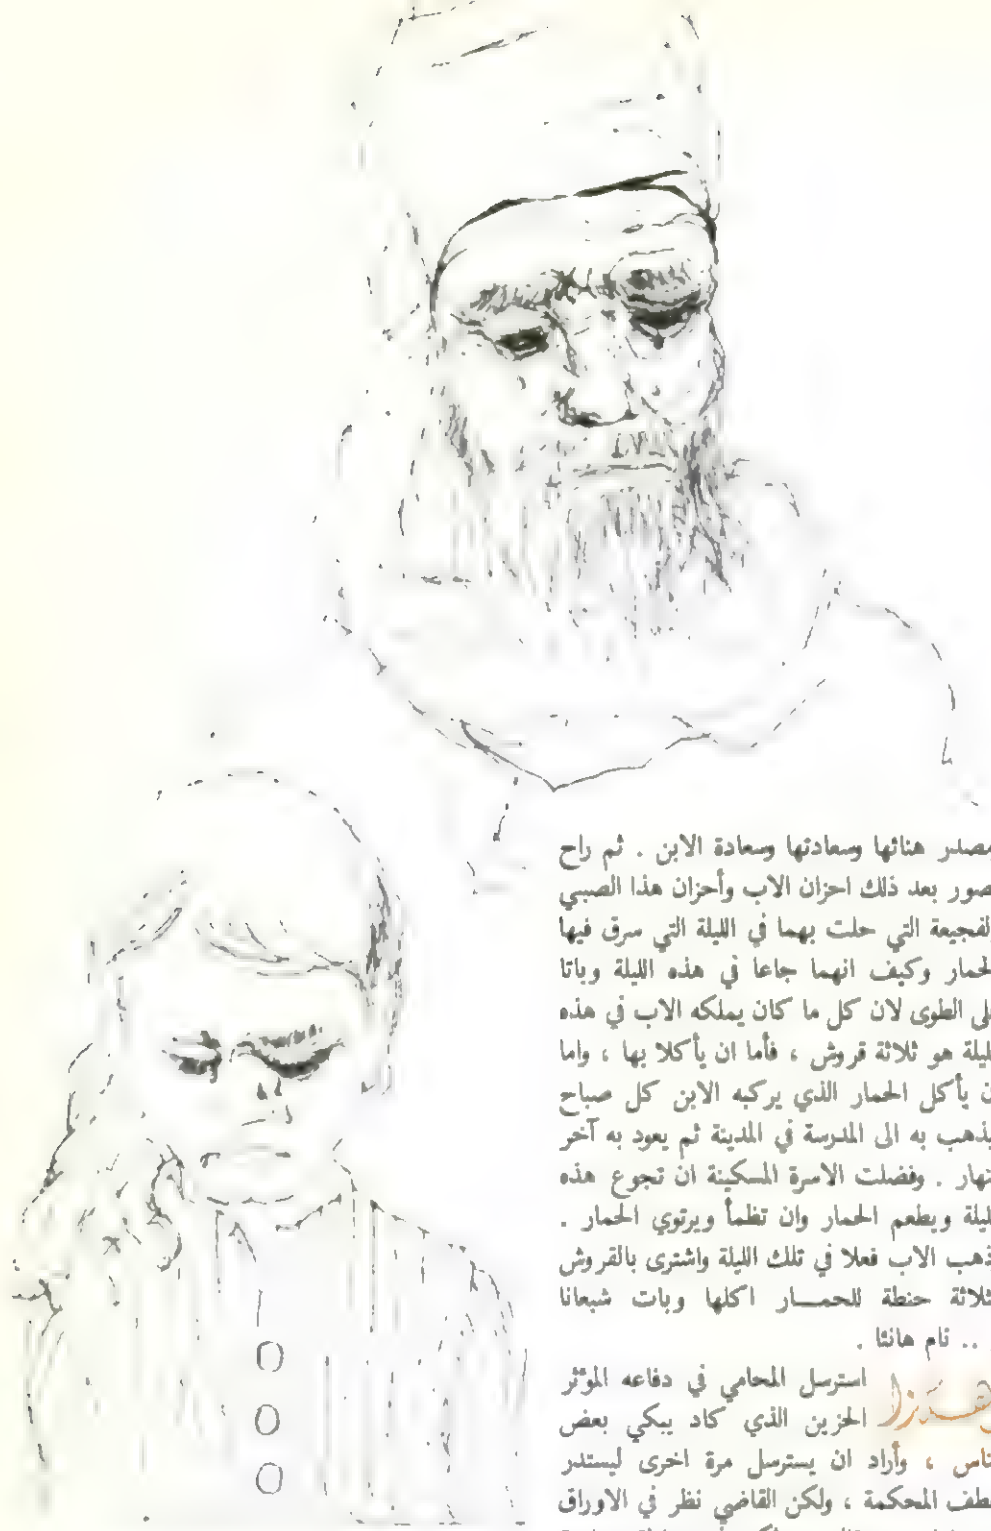 مصدر هنائها وسعادتها وسعادة الابن . ثم راح
صور بعد ذلك احزان الاب وأحزان هذا الصبي
لفجيعة التي حلت بهما في الليلة التي سرق فيها
لحمار وكيف انهما جاعا في هذه الليلة وباتا
لى الطوى لان كل ما كان يملكه الاب في هذه
ليلة هو ثلاثة قروش ، فأما ان يأكلا بها ، واما
ن يأكل الحمار الذي يركبه الابن كل صباح
يذهب به الى المدرسة في المدينة ثم يعود به آخر
نهار . وفضلت الاسرة المسكينة ان تجوع هذه
ليلة ويطعم الحمار وان تظمأ ويرتوي الحمار .
ذهب الاب فعلا في تلك الليلة واشترى بالقروش
ثلاثة حنطة للحمار اكلها وبات شبعانا
.. نام هانئا .
وهكذا استرسل المحامي في دفاعه المؤثر
الحزين الذي كاد يبكي بعض
ناس ، وأراد ان يسترسل مرة اخرى ليستدر
طف المحكمة ، ولكن القاضي نظر في الاوراق